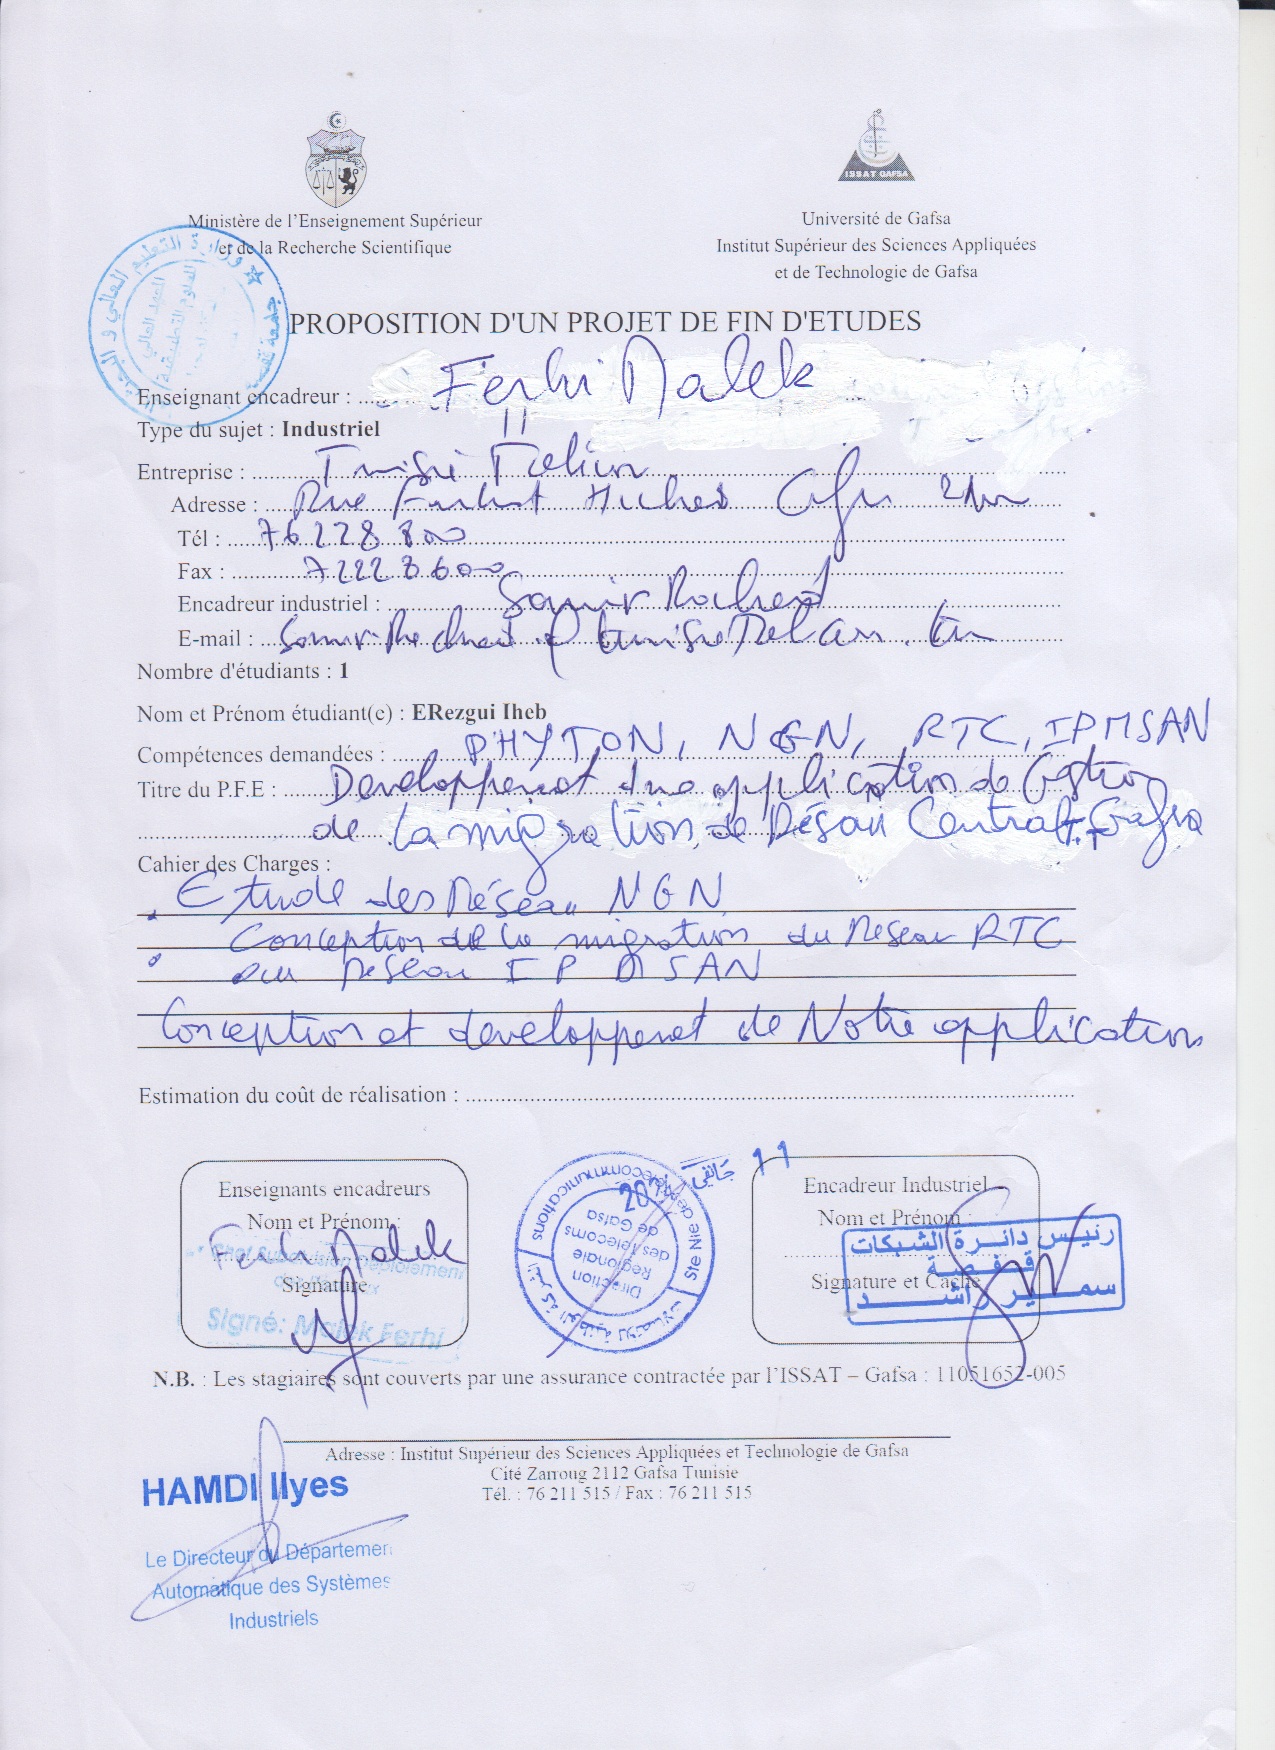 ISSAT GAFSA
Ministère de l'Enseignement Supérieur
et de la Recherche Scientifique
Université de Gafsa
Institut Supérieur des Sciences Appliquées
et de Technologie de Gafsa
PROPOSITION D'UN PROJET DE FIN D'ETUDES
Enseignant encadreur : Ferhi Malek
Type du sujet : Industriel
Entreprise : Tunisie Télécom
Adresse : Rue Farhat Hached Gafsa 2100
Tél : 76 228 800
Fax : 76 228 600
Encadreur industriel : Samir Rached
E-mail :
Nombre d'étudiants : 1
Nom et Prénom étudiant(e) : ERezgui Iheb
Compétences demandées : PHYTON, NGN, RTC, IPMSAN
Titre du P.F.E : Developpement d'une application de Gestion
de la migration de Résau Central Gafsa
Cahier des Charges :
Etude des Réseau NGN
Conception de la migration du Reseau RTC
au reseau IP MSAN
Conception et developpement de Notre application
Estimation du coût de réalisation :
Enseignants encadreurs
Nom et Prénom :
Ferhi Malek
Chef Subdivision Déploiement
Signature
Signé: Malek Ferhi
Ste Nle des Télécommunications
Direction
Régionale
des Télécoms
de Gafsa
11 جانفي
Encadreur Industriel
Nom et Prénom :
رئيس دائرة الشبكات
قفصة
Signature et Cachet
سمير راشد
N.B. : Les stagiaires sont couverts par une assurance contractée par l'ISSAT – Gafsa : 11051652-005
Adresse : Institut Supérieur des Sciences Appliquées et Technologie de Gafsa
Cité Zarroug 2112 Gafsa Tunisie
Tél. : 76 211 515 / Fax : 76 211 515
HAMDI Ilyes
Le Directeur du Département
Automatique des Systèmes
Industriels